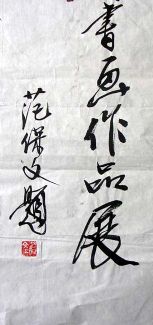 書画作品展
范保文题